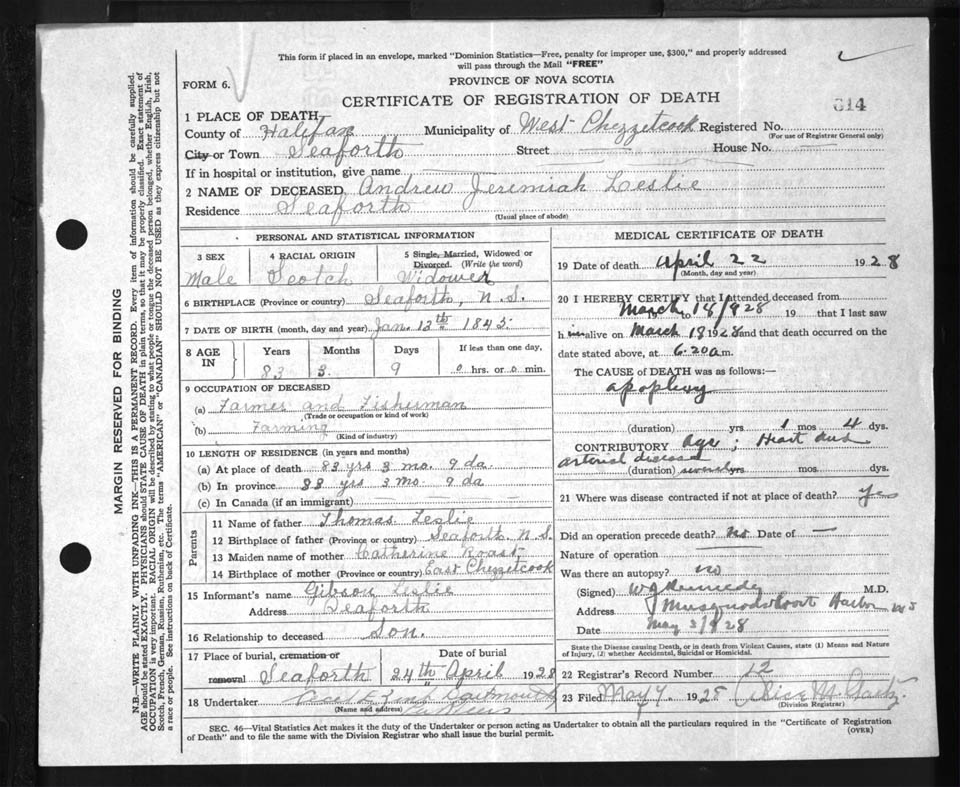 This form if placed in an envelope, marked "Dominion Statistics—Free, penalty for improper use, $300," and properly addressed
will pass through the Mail "FREE"
FORM 6.
PROVINCE OF NOVA SCOTIA
CERTIFICATE OF REGISTRATION OF DEATH
614
1 PLACE OF DEATH
County of Halifax Municipality of West Chezzetcook Registered No.
(For use of Registrar General only)
City or Town Seaforth Street House No.
If in hospital or institution, give name
2 NAME OF DECEASED Andrew Jeremiah Leslie
Residence Seaforth
(Usual place of abode)
PERSONAL AND STATISTICAL INFORMATION
3 SEX 4 RACIAL ORIGIN 5 Single, Married, Widowed or
Divorced. (Write the word)
Male Scotch Widower
6 BIRTHPLACE (Province or country) Seaforth, N.S.
7 DATE OF BIRTH (month, day and year) Jan. 13th 1845
8 AGE IN Years Months Days If less than one day,
83 3 9 0 hrs. or 0 min.
9 OCCUPATION OF DECEASED
(a) Farmer and Fisherman
(Trade or occupation or kind of work)
(b) Farming
(Kind of industry)
10 LENGTH OF RESIDENCE (in years and months)
(a) At place of death 83 yrs 3 mo. 9 da
(b) In province 83 yrs 3 mo. 9 da
(c) In Canada (if an immigrant)
Parents
11 Name of father Thomas Leslie
12 Birthplace of father (Province or country) Seaforth N.S.
13 Maiden name of mother Catherine Roast
14 Birthplace of mother (Province or country) East Chezzetcook
15 Informant's name Gibson Leslie
Address Seaforth
16 Relationship to deceased Son.
17 Place of burial, cremation or Date of burial
removal Seaforth 24th April 1928
18 Undertaker Dartmouth
(Name and address)
MEDICAL CERTIFICATE OF DEATH
19 Date of death April 22 1928
(Month, day and year)
20 I HEREBY CERTIFY that I attended deceased from
March to 18/928 19 that I last saw
h im alive on March 18 1928 and that death occurred on the
date stated above, at 6.20 a m.
The CAUSE of DEATH was as follows:—
apoplexy
(duration) yrs 1 mos 4 dys.
CONTRIBUTORY Age; Heart and
arterial disease
(duration) several yrs mos dys.
21 Where was disease contracted if not at place of death? Yes
Did an operation precede death? No Date of
Nature of operation
Was there an autopsy? no
(Signed) W J Kennedy M.D.
Address Musquodoboit Harbor NS
Date May 3/928
State the Disease causing Death, or in death from Violent Causes, state (1) Means and Nature
of Injury, (2) whether Accidental, Suicidal or Homicidal.
22 Registrar's Record Number 12
23 Filed May 7 1928 Alice M.
(Division Registrar)
SEC. 46—Vital Statistics Act makes it the duty of the Undertaker or person acting as Undertaker to obtain all the particulars required in the "Certificate of Registration
of Death" and to file the same with the Division Registrar who shall issue the burial permit.
(OVER)
MARGIN RESERVED FOR BINDING
N.B.—WRITE PLAINLY WITH UNFADING INK—THIS IS A PERMANENT RECORD. Every item of information should be carefully supplied.
AGE should be stated EXACTLY. PHYSICIANS should STATE CAUSE OF DEATH in plain terms, so that it may be properly classified. Exact statement of
OCCUPATION is very important. RACIAL ORIGIN will be described by stating to what people or tongue the deceased person belonged, whether English, Irish,
Scotch, French, German, Russian, Ruthenian, etc. The terms "AMERICAN" or "CANADIAN" SHOULD NOT BE USED as they express citizenship but not
a race or people. See instructions on back of Certificate.